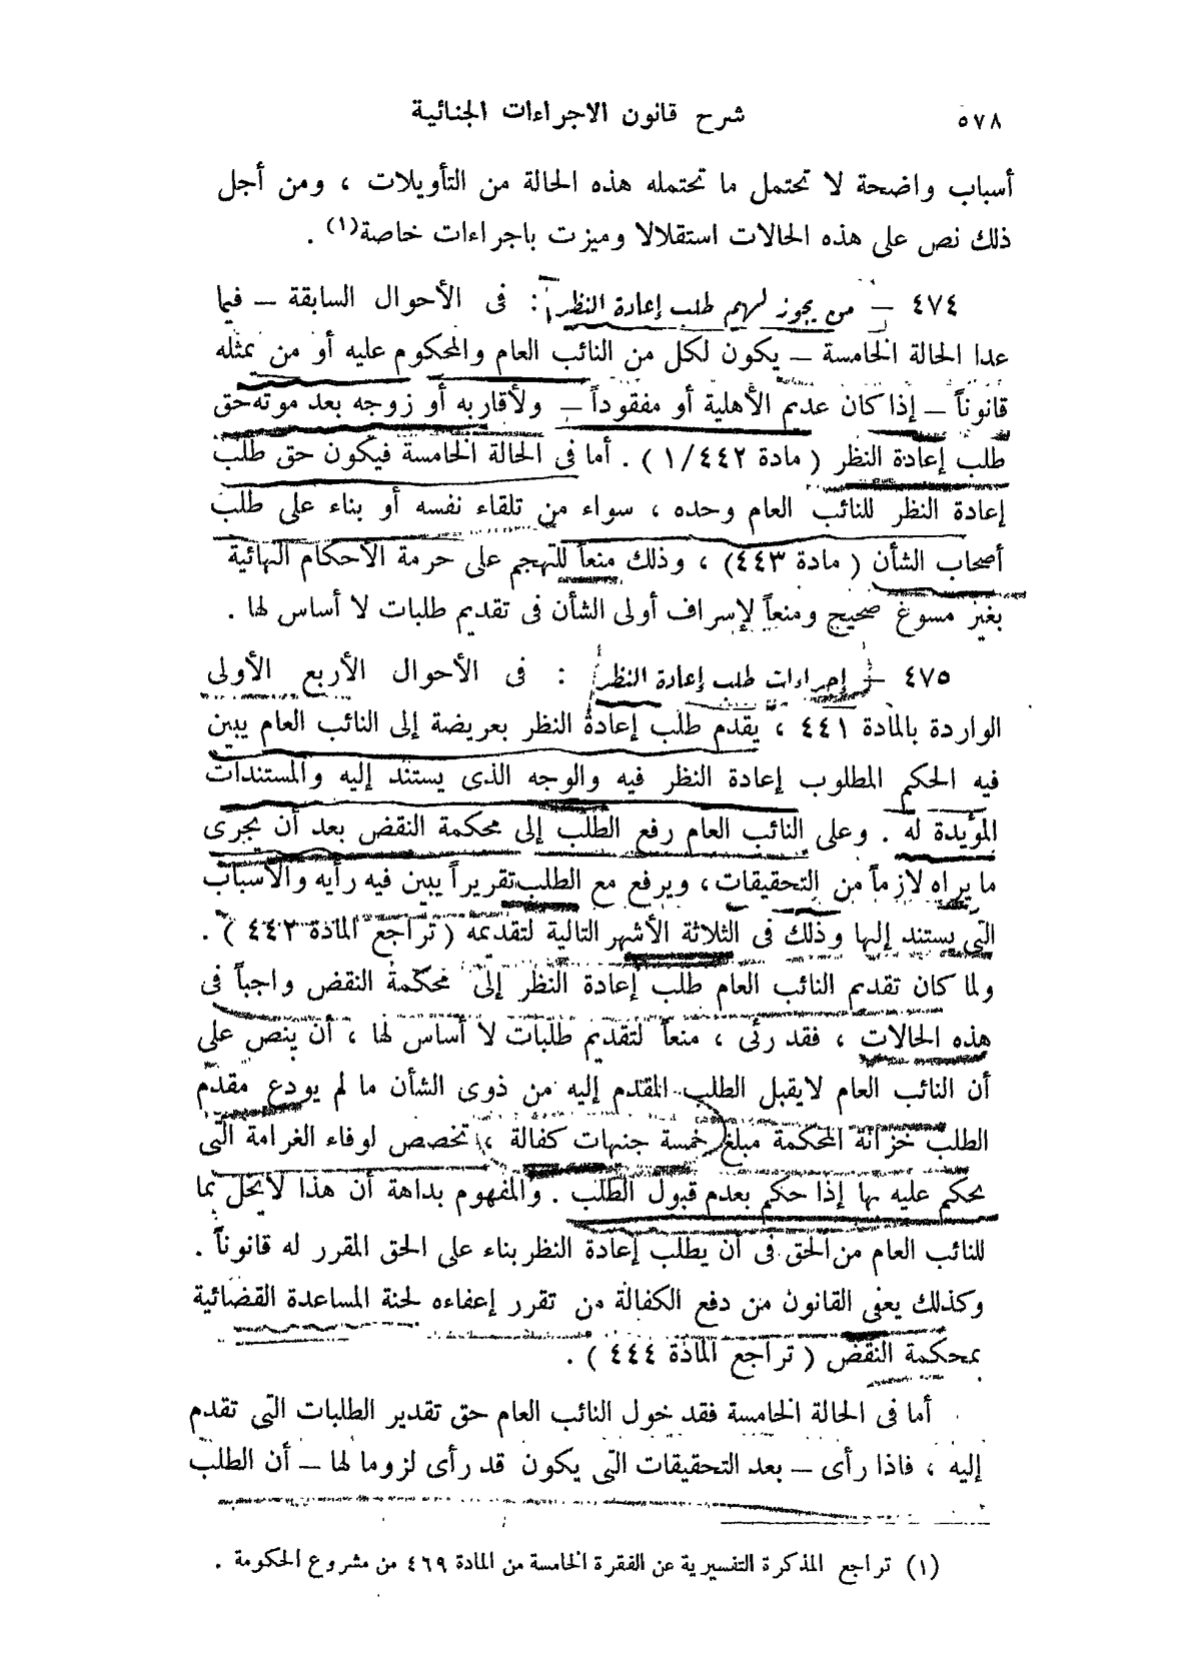 ٥٧٨
شرح قانون الاجراءات الجنائية
أسباب واضحة لا تحتمل ما تحتمله هذه الحالة من التأويلات ، ومن أجل
ذلك نص على هذه الحالات استقلالا وميزت باجراءات خاصة(١) .
٤٧٤ – من يجوز لهم طلب إعادة النظر : فى الأحوال السابقة – فيما
عدا الحالة الخامسة – يكون لكل من النائب العام والمحكوم عليه أو من يمثله
قانوناً – إذا كان عديم الأهلية أو مفقوداً – ولأقاربه أو زوجه بعد موته حق
طلب إعادة النظر ( مادة ١/٤٤٢ ) . أما فى الحالة الخامسة فيكون حق طلب
إعادة النظر للنائب العام وحده ، سواء من تلقاء نفسه أو بناء على طلب
أصحاب الشأن ( مادة ٤٤٣) ، وذلك منعاً للتهجم على حرمة الأحكام النهائية
بغير مسوغ صحيح ومنعاً لإسراف أولى الشأن فى تقديم طلبات لا أساس لها .
٤٧٥ – إجراءات طلب إعادة النظر : فى الأحوال الأربع الأولى
الواردة بالمادة ٤٤١ ، يقدم طلب إعادة النظر بعريضة إلى النائب العام يبين
فيه الحكم المطلوب إعادة النظر فيه والوجه الذى يستند إليه والمستندات
المؤيدة له . وعلى النائب العام رفع الطلب إلى محكمة النقض بعد أن يجرى
ما يراه لازماً من التحقيقات ، ويرفع مع الطلب تقريراً يبين فيه رأيه والأسباب
التى يستند إليها وذلك فى الثلاثة الأشهر التالية لتقديمه ( تراجع المادة ٤٤٢ ) .
ولما كان تقديم النائب العام طلب إعادة النظر إلى محكمة النقض واجباً فى
هذه الحالات ، فقد رئى ، منعاً لتقديم طلبات لا أساس لها ، أن ينص على
أن النائب العام لايقبل الطلب المقدم إليه من ذوى الشأن ما لم يودع مقدم
الطلب خزانة المحكمة مبلغ خمسة جنيهات كفالة ، تخصص لوفاء الغرامة التى
يحكم عليه بها إذا حكم بعدم قبول الطلب . والمفهوم بداهة أن هذا لايخل بما
للنائب العام من الحق فى أن يطلب إعادة النظر بناء على الحق المقرر له قانوناً .
وكذلك يعفى القانون من دفع الكفالة من تقرر إعفاءه لجنة المساعدة القضائية
بمحكمة النقض ( تراجع المادة ٤٤٤ ) .
أما فى الحالة الخامسة فقد خول النائب العام حق تقدير الطلبات التى تقدم
إليه ، فاذا رأى – بعد التحقيقات التى يكون قد رأى لزوما لها – أن الطلب
(١) تراجع المذكرة التفسيرية عن الفقرة الخامسة من المادة ٤٦٩ من مشروع الحكومة .